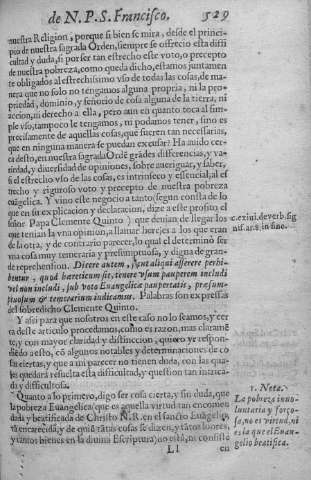 de N. P. S. Francisco. 529
nuestra Religion, porque si bien se mira, desde el princi-
pio de nuestra sagrada Orden, siempre se ofrecio esta difi
cultad y duda, si por ser tan estrecho este voto, o precepto
de nuestra pobreza, como queda dicho, estamos juntamen
te obligados al estrechissimo vso de todas las cosas, de ma-
nera que no solo no tengamos alguna propria, ni la pro-
priedad, dominio, y señorio de cosa alguna de la tierra, ni
accion, ni derecho a ella, pero aun en quanto toca al sim-
ple vso, tampoco le tengamos, ni podamos tener, sino es
precisamente de aquellas cosas, que fueren tan necessarias,
que en ninguna manera se puedan excusar? Ha auido cer-
ca desto, en nuestra sagrada Ordē grādes differencias, y va-
riedad, y diuersidad de opiniones, sobre aueriguar, y saber,
si el estrecho vso de las cosas, es intrinseco y essencial, al es
trecho y riguroso voto y precepto de nuestra pobreza
euāgelica. Y vino este negocio a tanto (segun consta de lo
que en su explicacion y declaracion, dize a este proposito el
señor Papa Clemente Quinto) que deuian de llegar los
que tenian la vna opinion, a llamar herejes a los que eran
de la otra, y de contrario parecer, lo qual el determinó ser
vna cosa muy temeraria y presumptuosa, y digna de gran-
de reprehension. Dicere autem, sicut aliqui asserere perhi-
bentur, quod hæreticum sit, tenere vsum pauperem includi
vel non includi, sub voto Euangelicæ paupertatis, præsum-
ptuosum & temerarium iudicamus. Palabras son expressas
del sobredicho Clemente Quinto.
Y assi para que nosotros en este caso no lo seamos, y cer
ca deste articulo procedamos, como es razon, mas claramē
te, y con mayor claridad y distinccion, quiero yr respon-
diēdo a esto, cō algunos notables y determinaciones de co
sas ciertas, y que a mi parecer no tienen duda, con las qua-
les quedará resuelta esta difficultad, y question tan intrica-
da y difficultosa.
Quanto a lo primero, digo ser cosa cierta, y sin duda, que
la pobreza Euangelica (que es aquella virtud tan encomen
dada y beatificada de Christo N. R. en el sancto Euāgelio
tā encarecida, y de quiē tātas cosas se dizen, y tātos loores,
y tantos bienes en la diuina Escriptura) no está, ni consiste
Ll en
c. exiui. de verb. sig
nif. ar. 8. in fine.
1. Nota.
La pobreza inuo-
luntaria y forço-
sa, no es virtud, ni
es la que el Euan-
gelio beatifica.